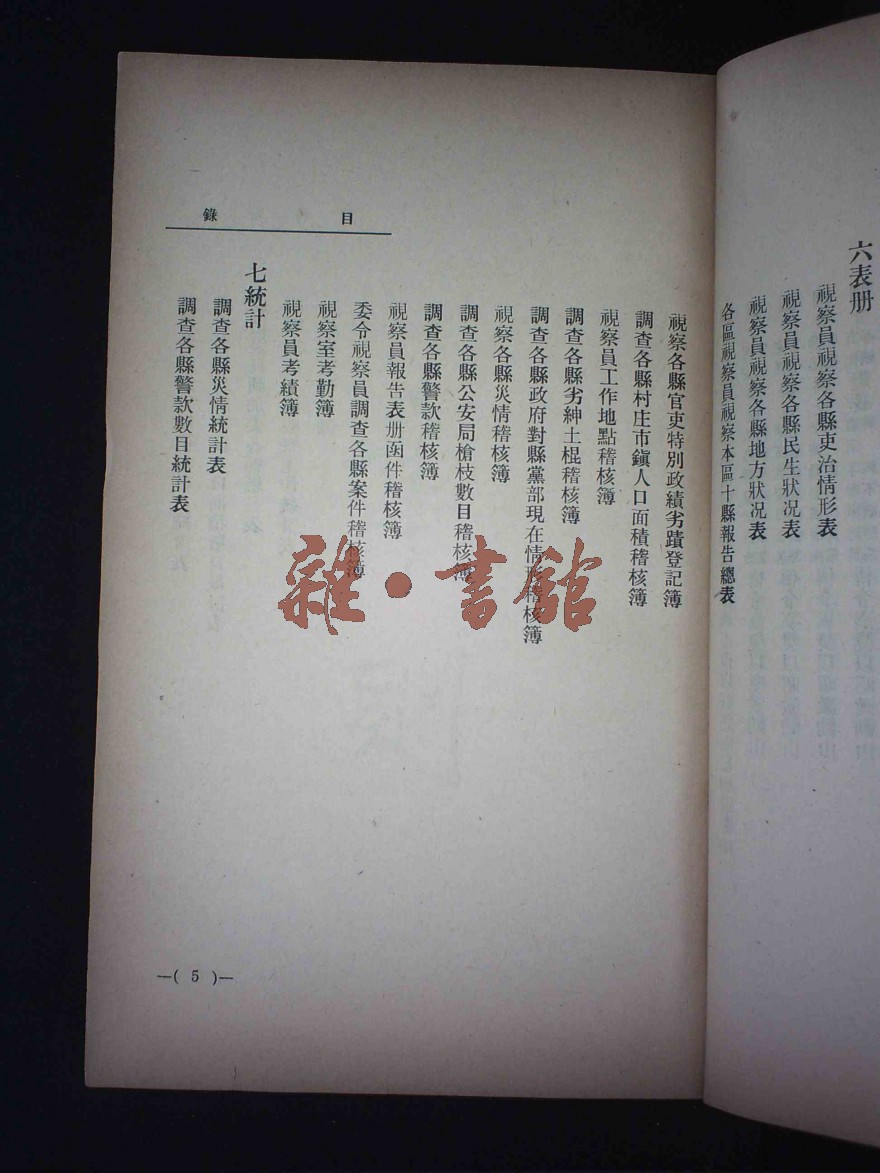 六表册
視察員視察各縣吏治情形表
視察員視察各縣民生狀况表
視察員視察各縣地方狀况表
各區視察員視察本區十縣報告總表
目錄
視察各縣官吏特別政績劣蹟登記簿
調查各縣村庄市鎭人口面積稽核簿
視察員工作地點稽核簿
調查各縣劣紳土棍稽核簿
調查各縣政府對縣黨部現在情形稽核簿
視察各縣災情稽核簿
調查各縣公安局槍枝數目稽核簿
調查各縣警款稽核簿
視察員報告表册函件稽核簿
委令視察員調查各縣案件稽核簿
視察室考勤簿
視察員考績簿
七統計
調查各縣災情統計表
調查各縣警款數目統計表
—( 5 )—
雜·書館